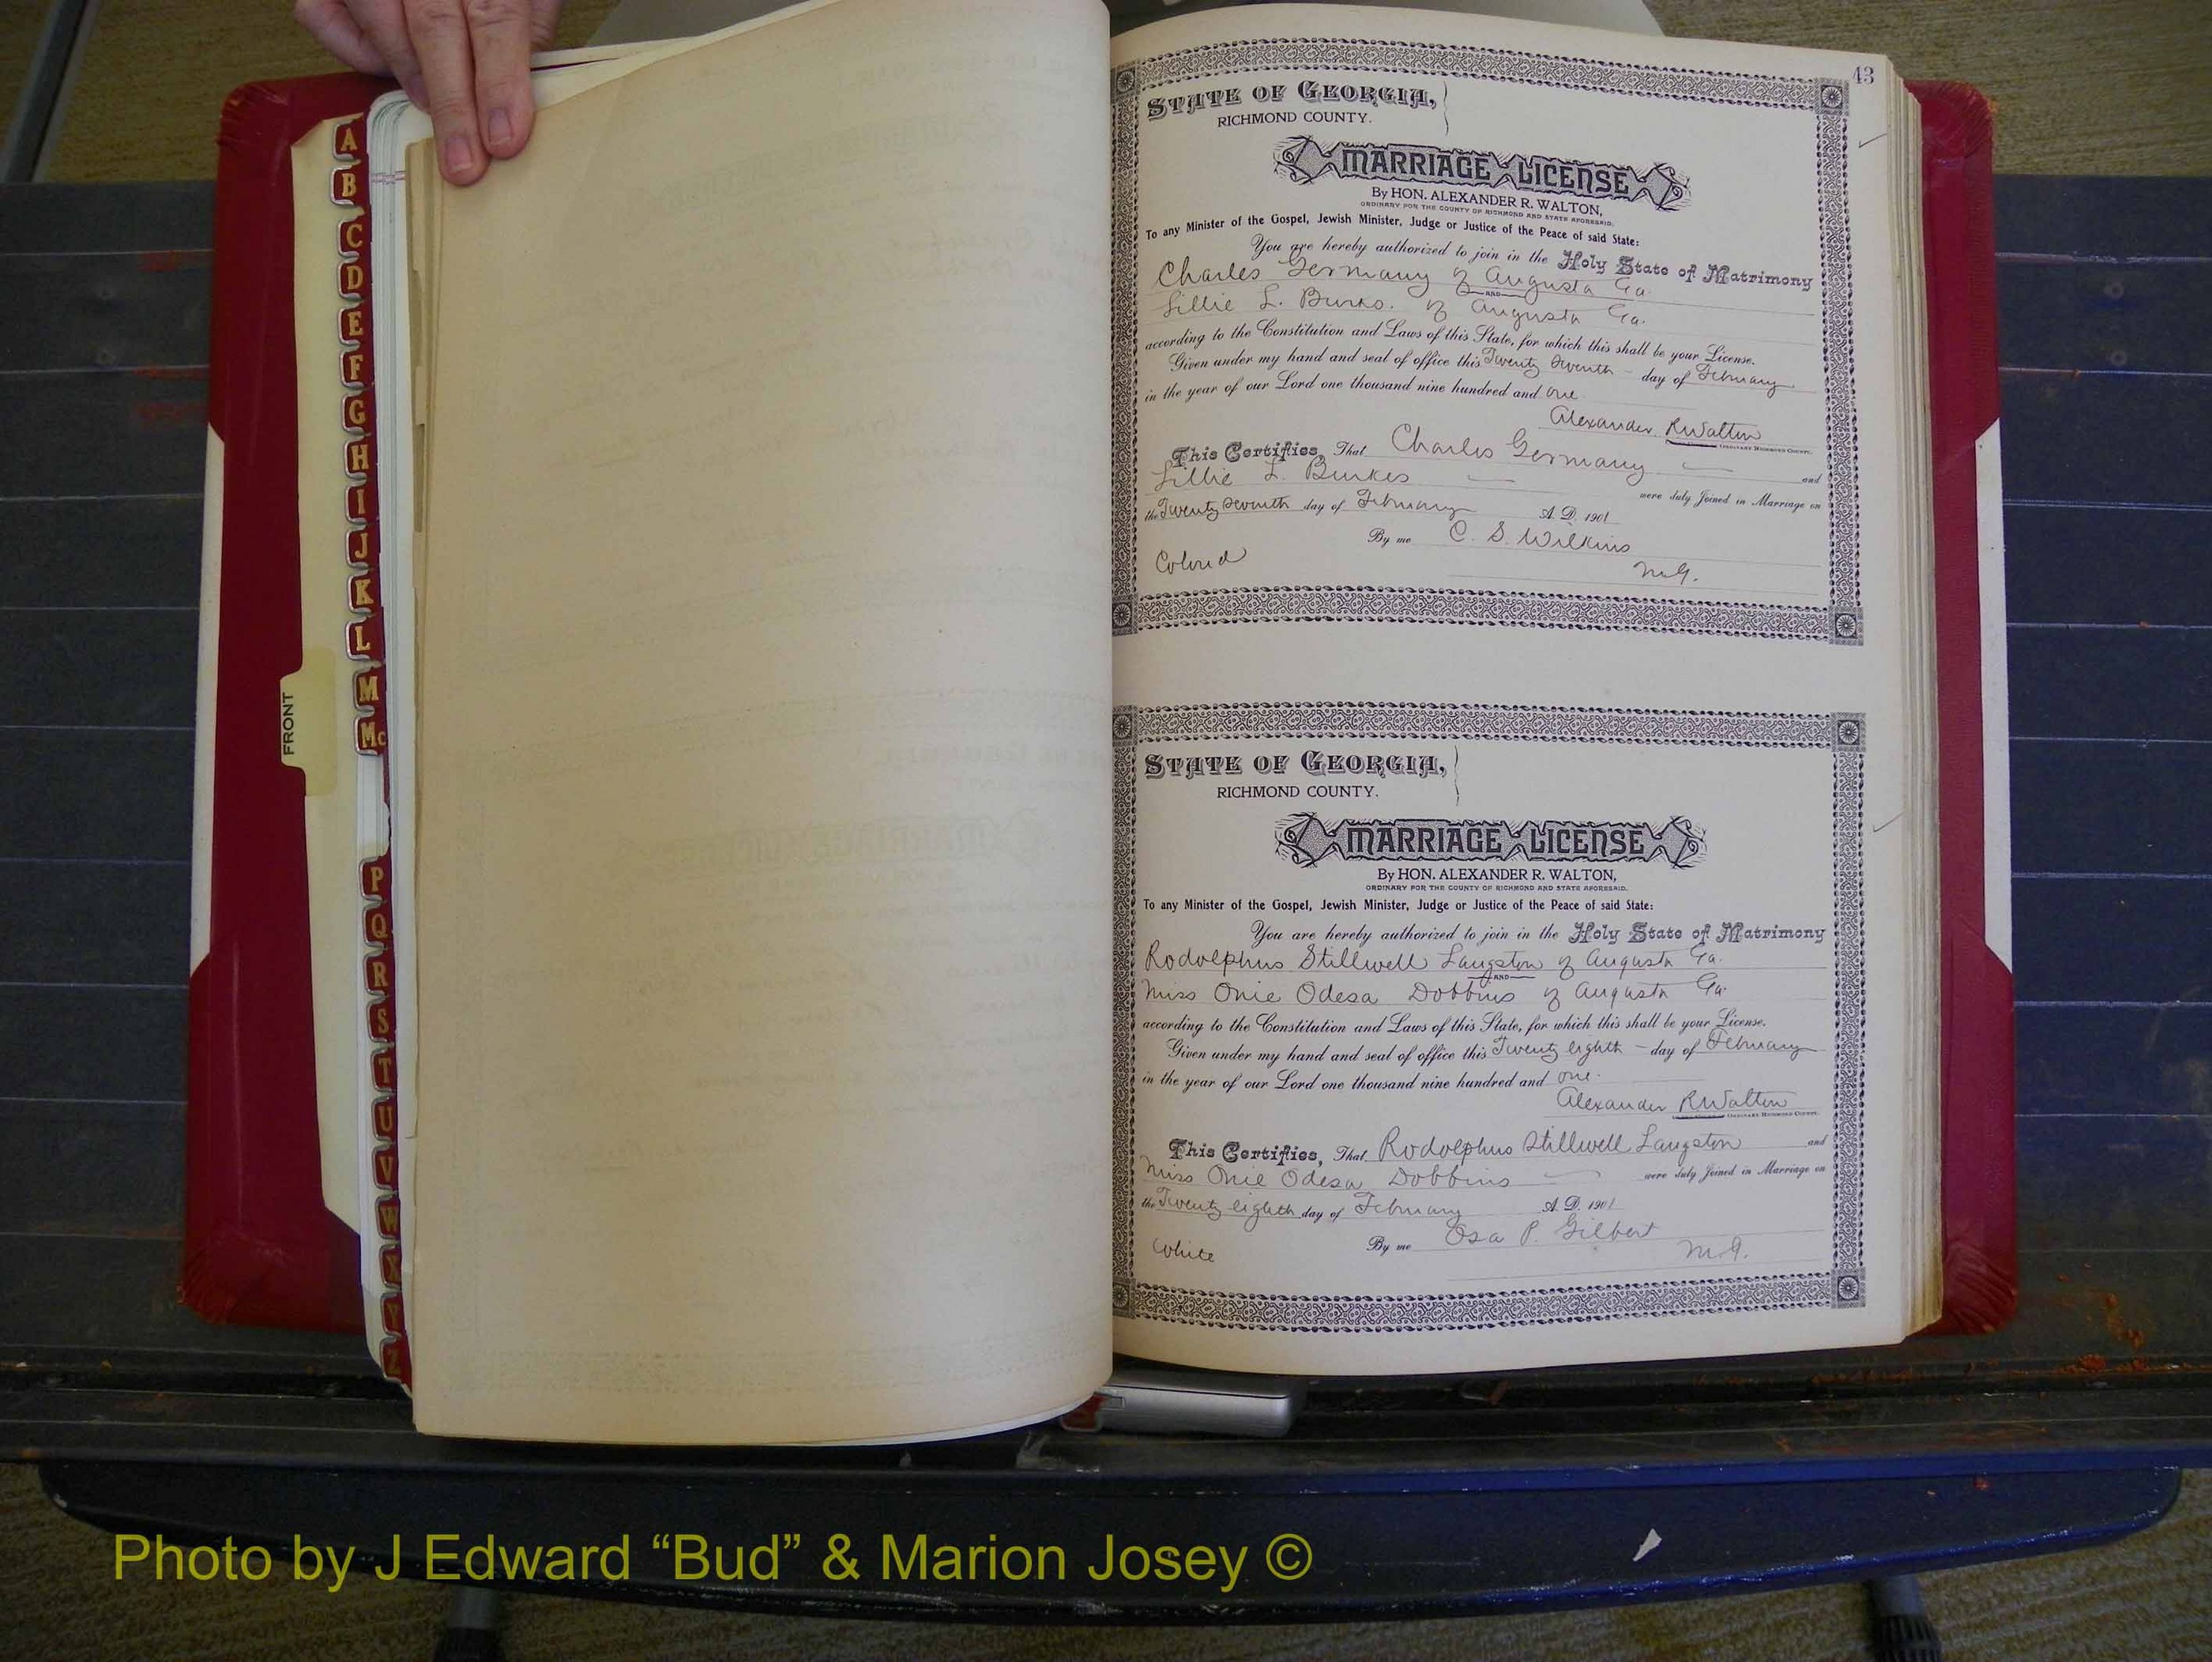 A
B
C
D
E
F
G
H
I
J
K
L
M
Mc
P
Q
R
S
T
U
V
W
X
Y
Z
FRONT
43
STATE OF GEORGIA,
RICHMOND COUNTY.
MARRIAGE LICENSE
By HON. ALEXANDER R. WALTON,
ORDINARY FOR THE COUNTY OF RICHMOND AND STATE AFORESAID.
To any Minister of the Gospel, Jewish Minister, Judge or Justice of the Peace of said State:
You are hereby authorized to join in the Holy State of Matrimony
Charles Germany of Augusta Ga.
AND
Lillie L. Burks. of Augusta Ga.
according to the Constitution and Laws of this State, for which this shall be your License.
Given under my hand and seal of office this Twenty Seventh - day of February
in the year of our Lord one thousand nine hundred and One.
Alexander R Walton
ORDINARY RICHMOND COUNTY.
This Certifies, That Charles Germany and
Lillie L. Burkes were duly Joined in Marriage on
the Twenty Seventh day of February A. D. 1901
By me C. S. Wilkins
Colored M.G.
STATE OF GEORGIA,
RICHMOND COUNTY.
MARRIAGE LICENSE
By HON. ALEXANDER R. WALTON,
ORDINARY FOR THE COUNTY OF RICHMOND AND STATE AFORESAID.
To any Minister of the Gospel, Jewish Minister, Judge or Justice of the Peace of said State:
You are hereby authorized to join in the Holy State of Matrimony
Rodolphus Stillwell Langston of Augusta Ga.
AND
Miss Onie Odesa Dobbins of Augusta Ga.
according to the Constitution and Laws of this State, for which this shall be your License.
Given under my hand and seal of office this Twenty eighth - day of February
in the year of our Lord one thousand nine hundred and One.
Alexander R Walton
ORDINARY RICHMOND COUNTY.
This Certifies, That Rodolphus Stillwell Langston and
Miss Onie Odesa Dobbins were duly Joined in Marriage on
the Twenty eighth day of February A. D. 1901
By me Osa P. Gilbert
White M.G.
Photo by J Edward “Bud” & Marion Josey ©